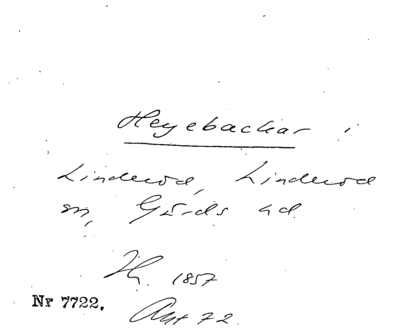 Heyebackar i
Linderöd, Linderöd
sn, Gärds hd.
1857
Nr 7722. Ant 72